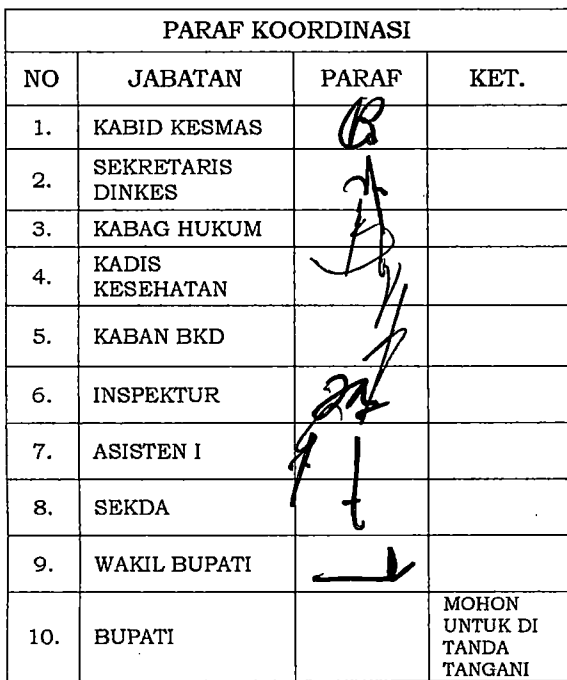 PARAF KOORDINASI
NO JABATAN PARAF KET.
1. KABID KESMAS
2. SEKRETARIS DINKES
3. KABAG HUKUM
4. KADIS KESEHATAN
5. KABAN BKD
6. INSPEKTUR
7. ASISTEN I
8. SEKDA
9. WAKIL BUPATI
10. BUPATI
MOHON
UNTUK DI
TANDA
TANGANI